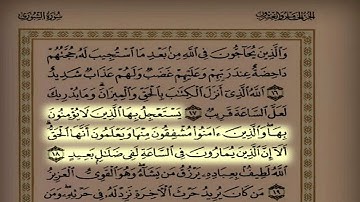 الجزء الخامس والعشرون سورة الشورى
وَالَّذِينَ يُحَاجُّونَ فِي اللَّهِ مِن بَعْدِ مَا اسْتُجِيبَ لَهُ حُجَّتُهُمْ
دَاحِضَةٌ عِندَ رَبِّهِمْ وَعَلَيْهِمْ غَضَبٌ وَلَهُمْ عَذَابٌ شَدِيدٌ
١٦ اللَّهُ الَّذِي أَنزَلَ الْكِتَابَ بِالْحَقِّ وَالْمِيزَانَ وَمَا يُدْرِيكَ
لَعَلَّ السَّاعَةَ قَرِيبٌ ١٧ يَسْتَعْجِلُ بِهَا الَّذِينَ لَا يُؤْمِنُونَ
بِهَا وَالَّذِينَ ءَامَنُوا مُشْفِقُونَ مِنْهَا وَيَعْلَمُونَ أَنَّهَا الْحَقُّ
أَلَا إِنَّ الَّذِينَ يُمَارُونَ فِي السَّاعَةِ لَفِي ضَلَالٍ بَعِيدٍ ١٨
اللَّهُ لَطِيفٌ بِعِبَادِهِ يَرْزُقُ مَن يَشَاءُ وَهُوَ الْقَوِيُّ الْعَزِيزُ
١٩ مَن كَانَ يُرِيدُ حَرْثَ الْآخِرَةِ نَزِدْ لَهُ فِي حَرْثِهِ وَمَن